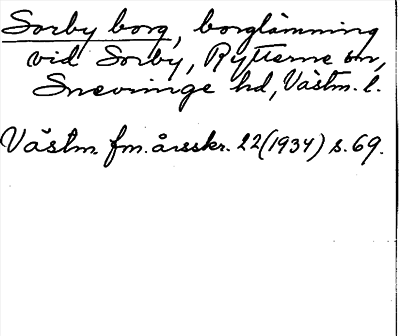 Sorby borg, borglämning
vid Sorby, Rytterne sn,
Snevringe hd, Västm. l.
Västm. fm. årsskr. 22(1934) s. 69.